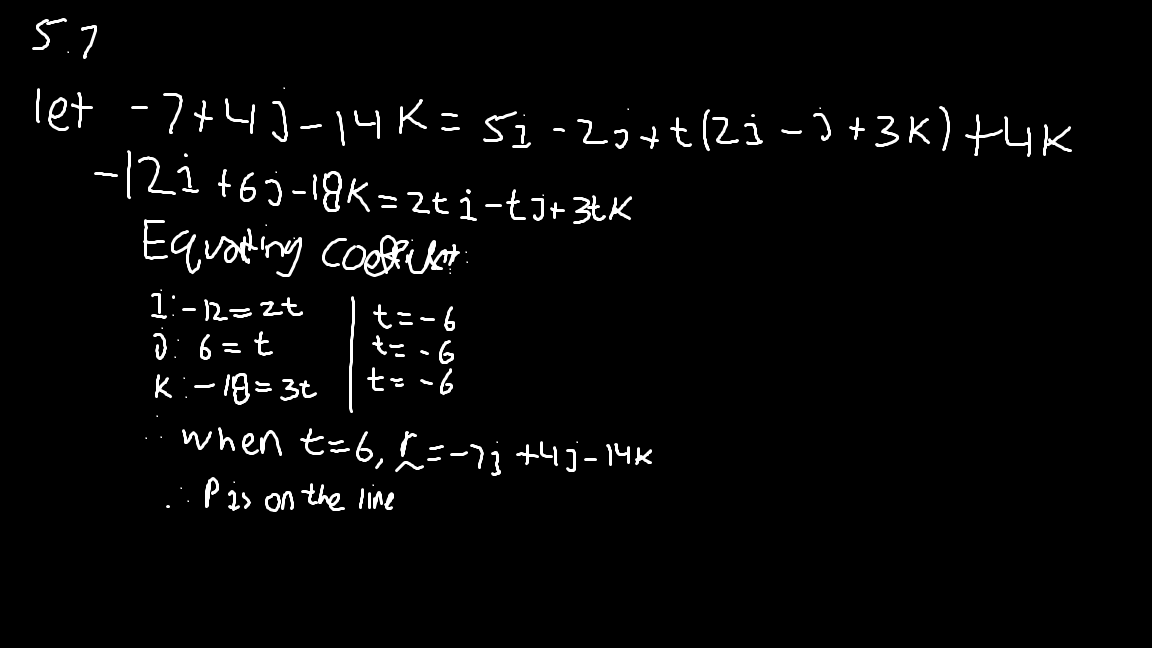 5.7
let -7+4j-14K = 5i-2j+t(2i-j+3K)+4K
-12i+6j-18K=2ti-tj+3tK
Equating coefficient:
I:-12=2t | t=-6
J: 6=t | t=-6
K:-18=3t | t=-6
∴ when t=6, r=-7j+4j-14K
∴ P is on the line